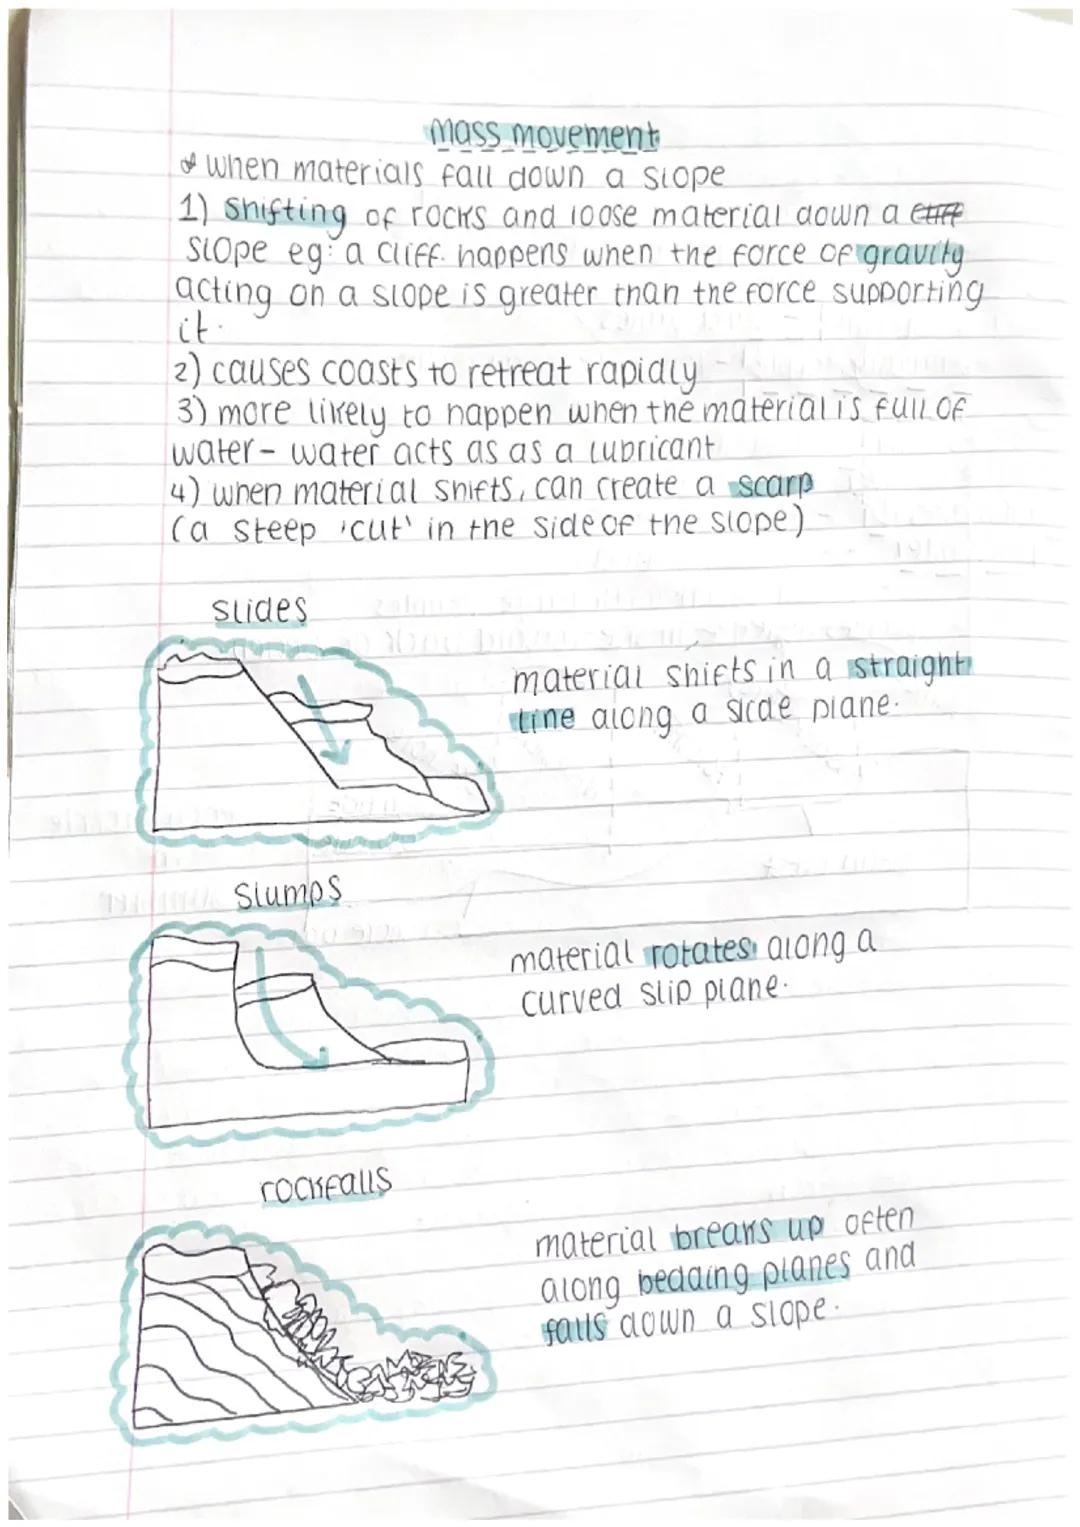 mass movement
when materials fall down a slope
1) shifting of rocks and loose material down a cliff
slope eg: a cliff. happens when the force of gravity
acting on a slope is greater than the force supporting
it.
2) causes coasts to retreat rapidly
3) more likely to happen when the material is full of
water - water acts as as a lubricant
4) when material shifts, can create a scarp
(a steep 'cut' in the side of the slope)
slides
material shifts in a straight
line along a slide plane.
slumps
material rotates along a
curved slip plane.
rockfalls
material breaks up often
along bedding planes and
falls down a slope.